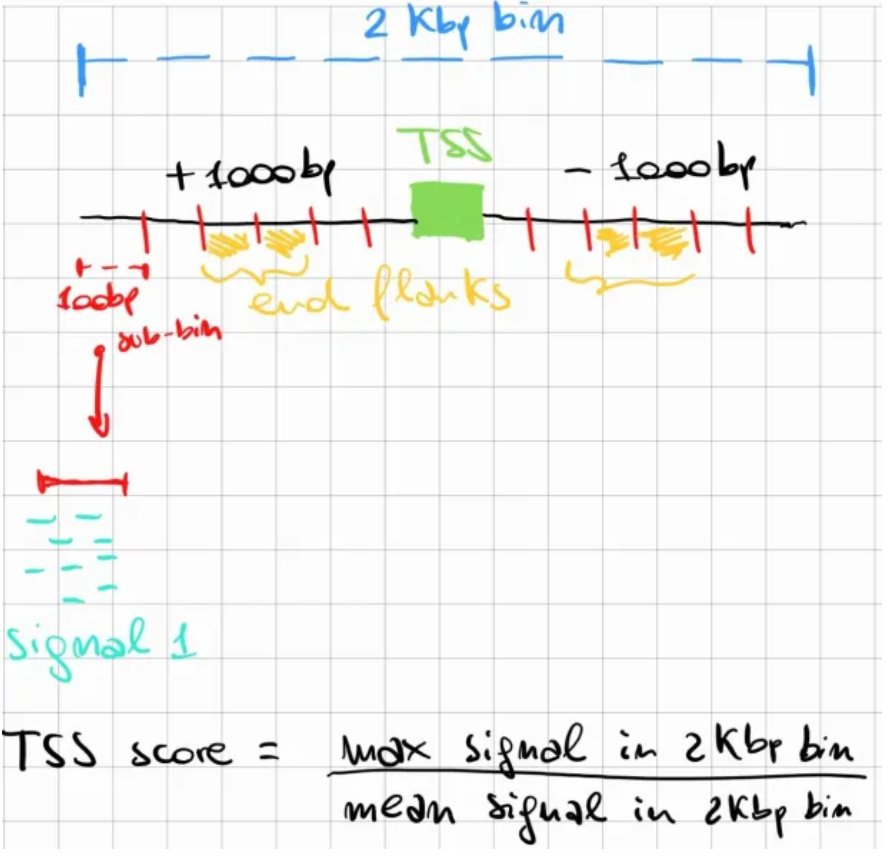 2 Kbp bin
TSS
+1000bp
- 1000bp
100bp
end flanks
sub-bin
signal 1
TSS score = max signal in 2Kbp bin
mean signal in 2Kbp bin